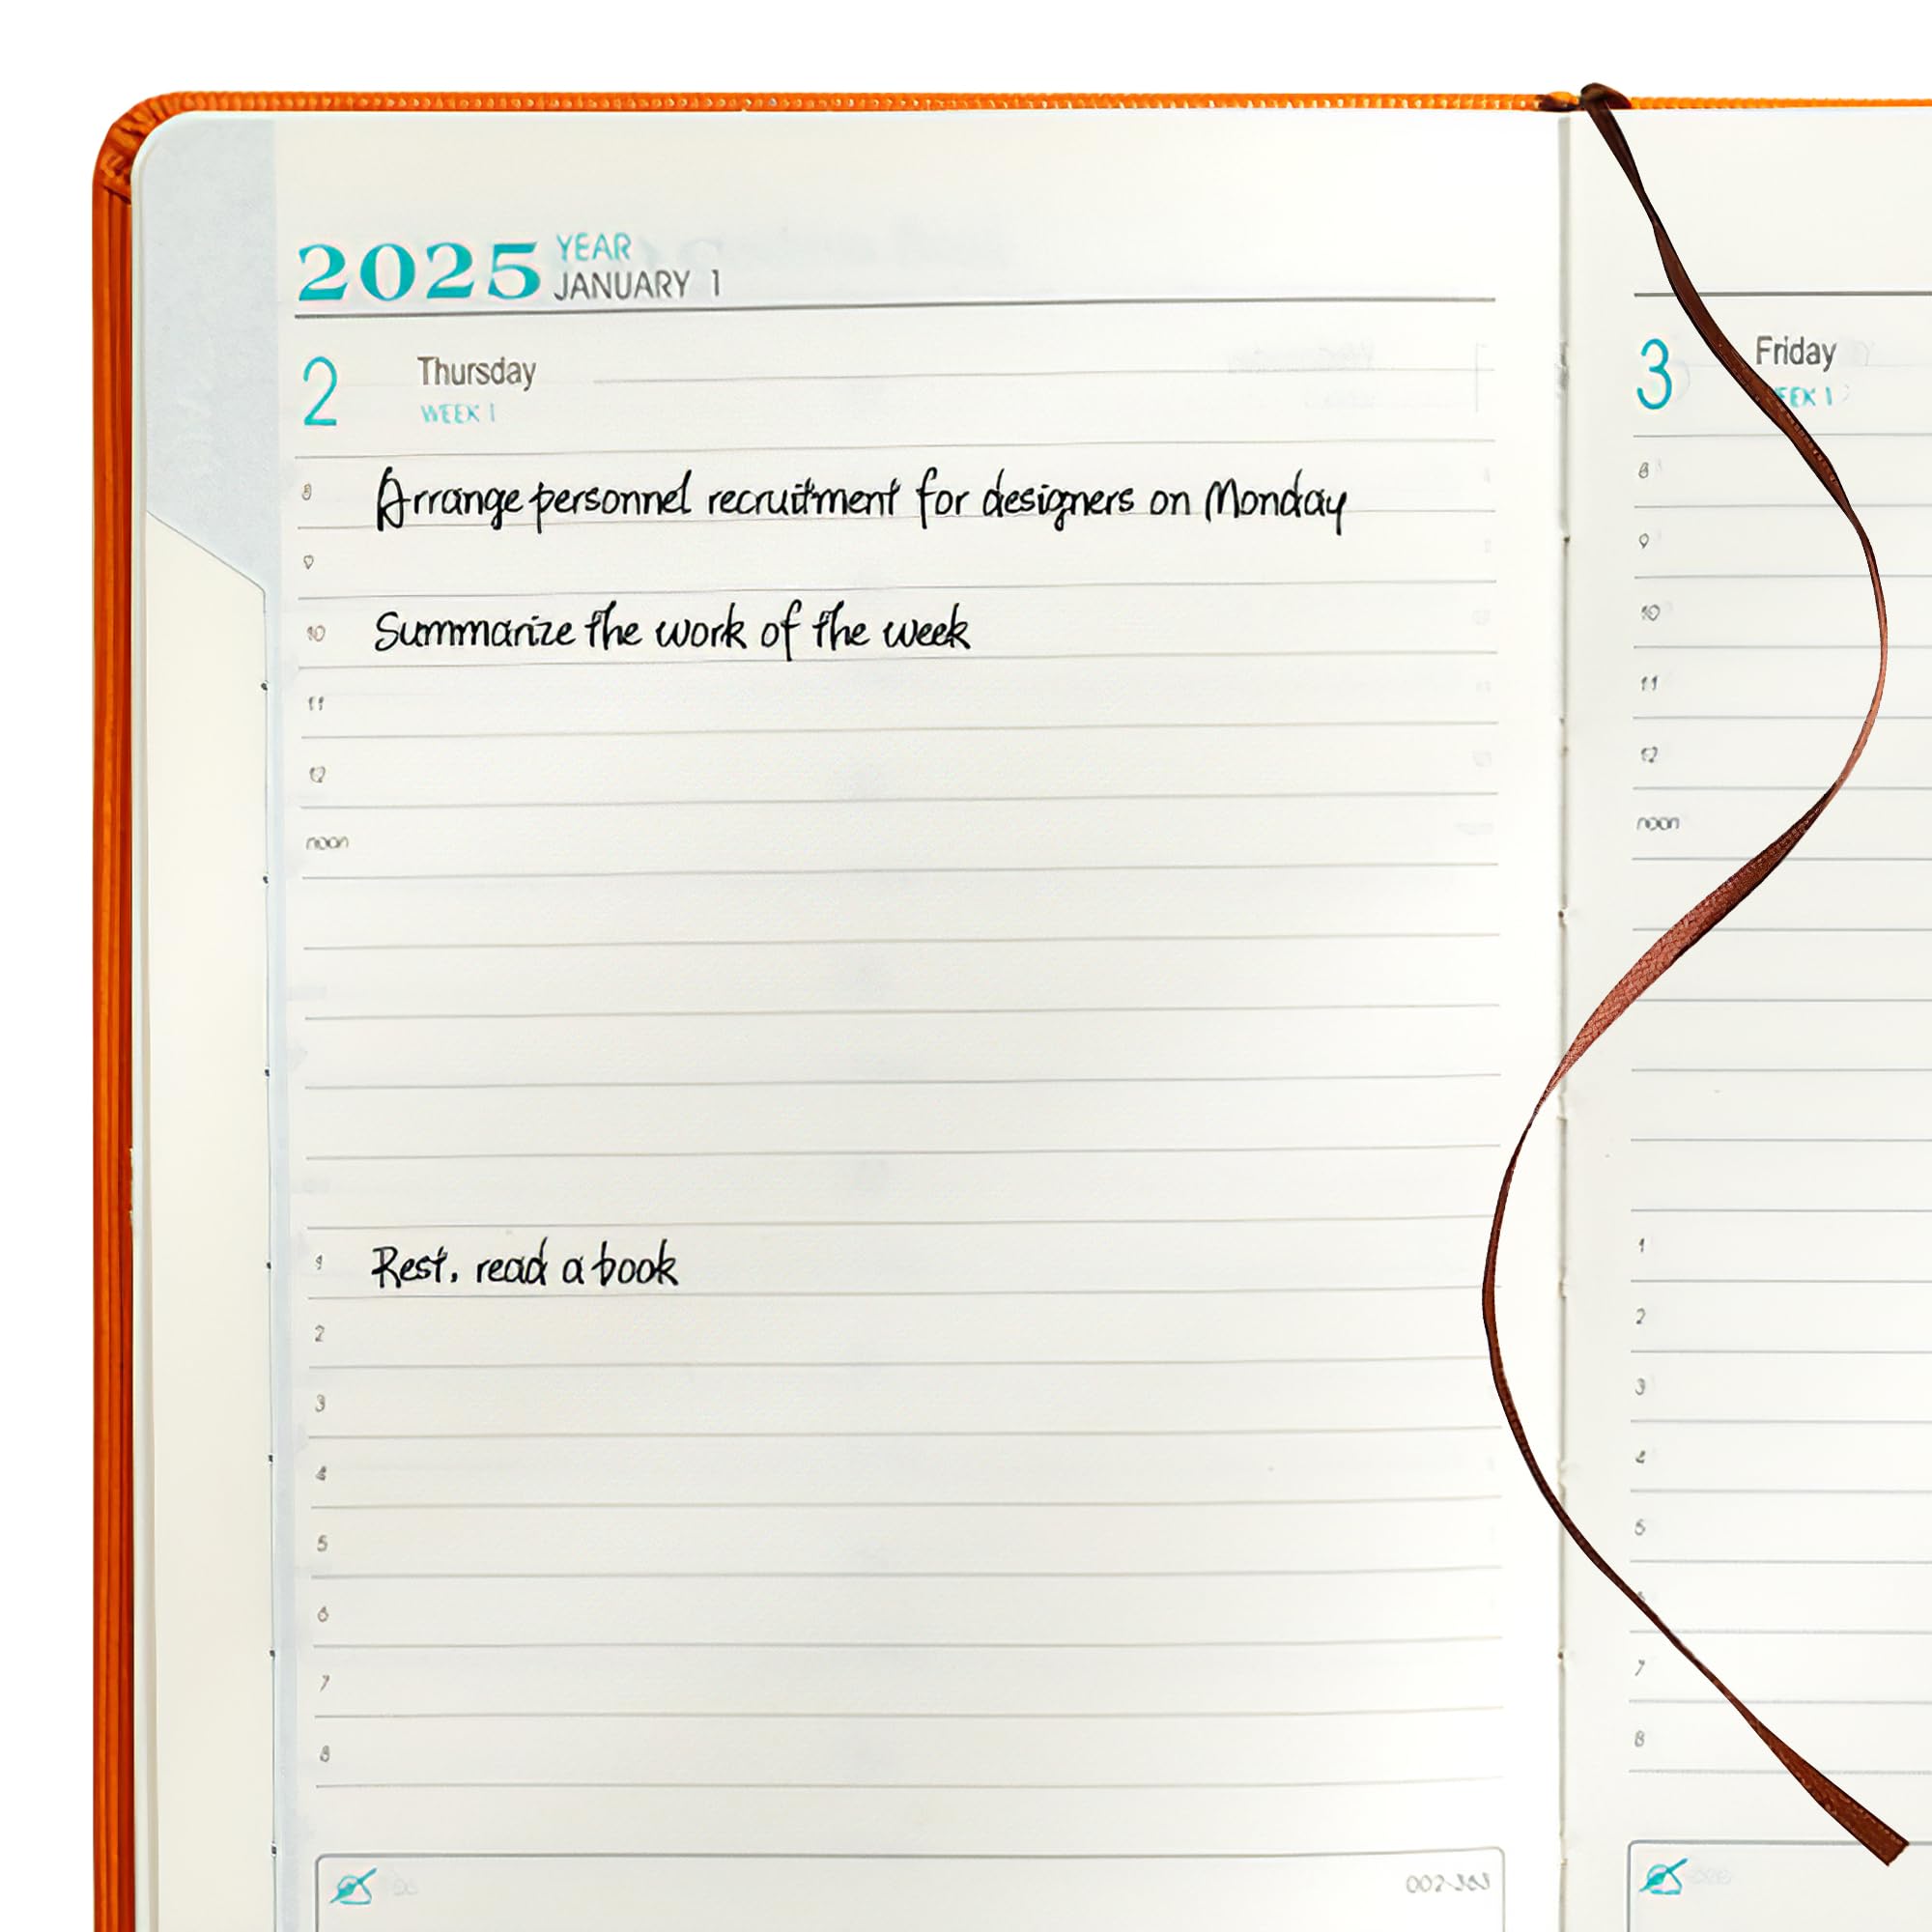 2025 YEAR
JANUARY 1
2 Thursday
WEEK 1
8 Arrange personnel recruitment for designers on Monday
9
10 Summarize the work of the week
11
12
noon
1 Rest, read a book
2
3
4
5
6
7
8
3 Friday
EEK 1
8
9
10
11
12
noon
1
2
3
4
5
7
8